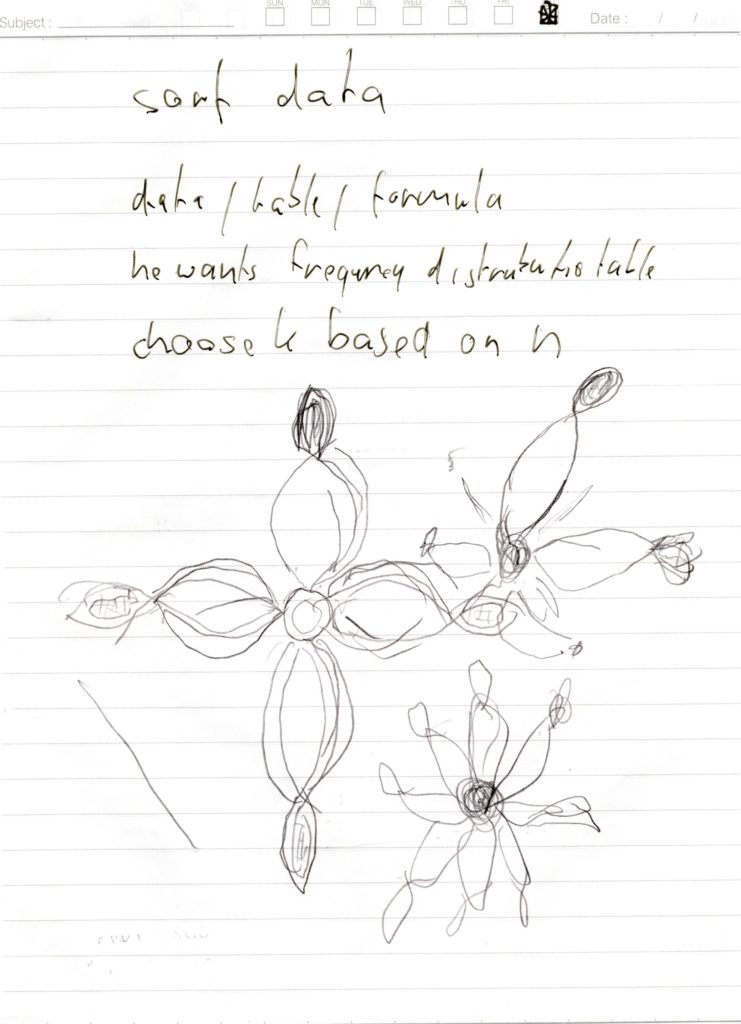 Subject : SUN MON TUE WED THU FRI Date : / /
sort data
data / table / formula
he wants frequncy distrubutio table
choose k based on n